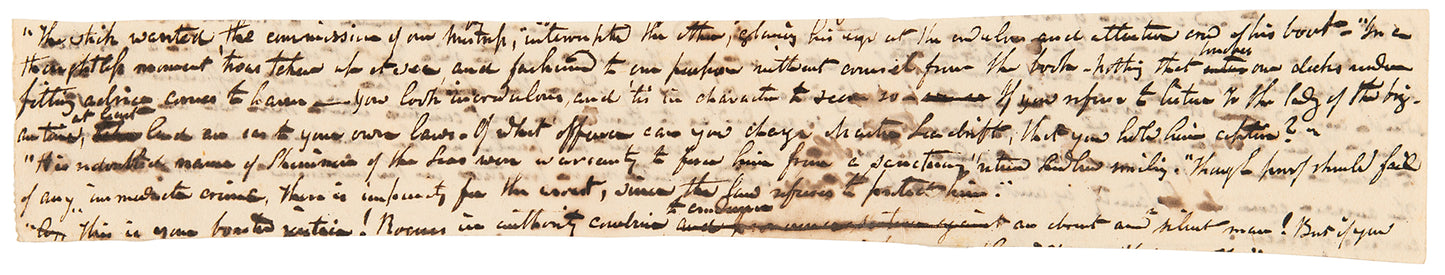 "The which wanted, the commission of our Mistress," interrupted the other, glancing his eye at the credulous and attentive crew of his boat - "In a
thoughtless moment 'twas taken up at sea, and fashioned to our purpose without counsel from the book - Nothing that touches our decks under
fitting advice comes to harm — You look incredulous, and 'tis in character to seem so — If you refuse to listen to the lady of the brig-
antine, at least lend an ear to your own laws - Of what offence can you charge Master Seadrift, that you hold him captive?"
"His redoubted name of Skimmer of the Seas were warranty to force him from a sanctuary," return'd Ludlow smiling. "Though proof should fail
of any immediate crime, there is impunity for the arrest, since the law refuses to protect him."
"this is your boasted justice! Rogues in authority combine to condemn an absent and silent man! But if you